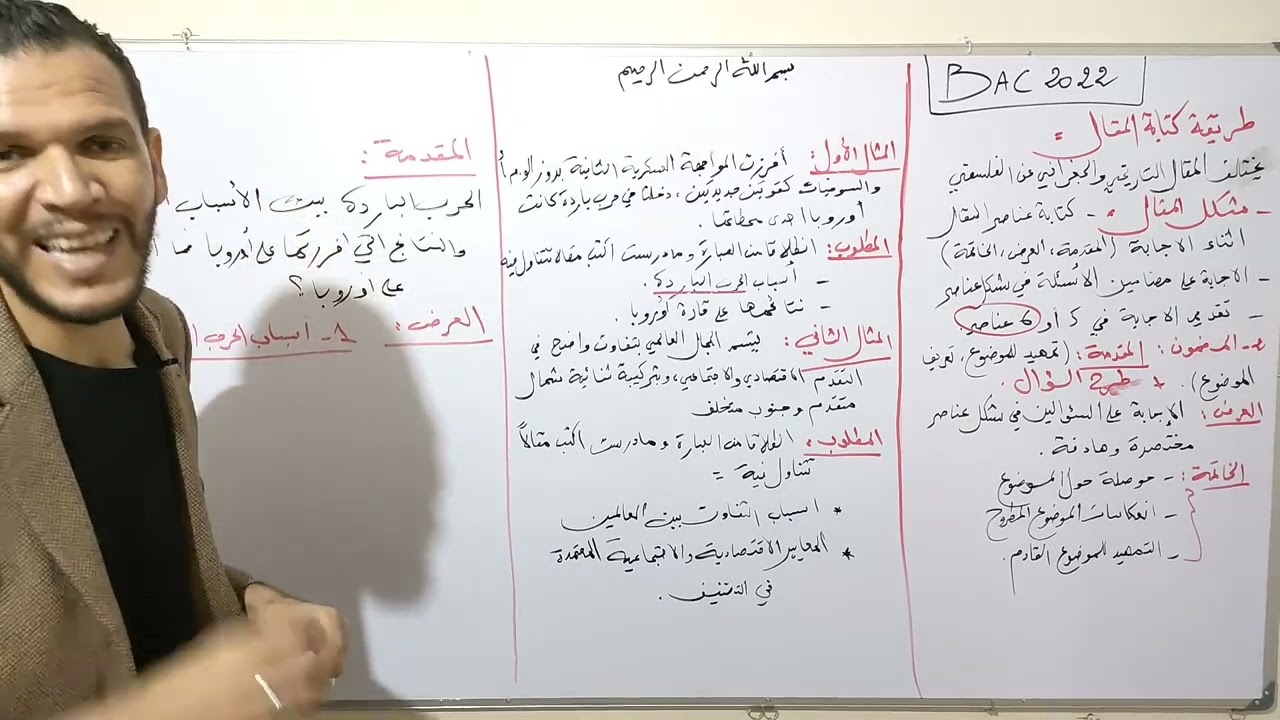 BAC 2022
طريقة كتابة المقال =
يختلف المقال التاريخي والجغرافي عن الفلسفي
- شكل المقال: - كتابة عناصر المقال
اثناء الاجابة (المقدمة، العرض، الخاتمة)
- الاجابة على مضامين الاسئلة في شكل عناصر
- تقديم الاجابة في 5 أو 6 عناصر
المضمون: المقدمة: (تمهيد للموضوع، تعريف
الموضوع). + طرح السؤال.
العرض: الإجابة على السؤالين في شكل عناصر
مختصرة وهادفة.
الخاتمة: - حوصلة حول الموضوع
- انعكاسات الموضوع المطروح
- التمهيد للموضوع القادم.
بسم الله الرحمن الرحيم
المثال الأول: أفرزت المواجهة العسكرية الثانية بروز الو.م.أ
والسوفيات كقوتين جديدتين، دخلتا في حرب باردة كانت
أوروبا احدى محطاتها.
المطلوب: انطلاقا من العبارة ومادرست اكتب مقالا تتناول فيه
- أسباب الحرب الباردة.
- نتائجها على قارة أوروبا.
المثال الثاني: يتسم المجال العالمي بتفاوت واضح في
التقدم الاقتصادي والاجتماعي، وبتركيبة ثنائية شمال
متقدم وجنوب متخلف
المطلوب: انطلاقا من العبارة ومادرست اكتب مقالاً
تتناول فيه =
* اسباب التفاوت بين العالمين
* المعايير الاقتصادية والاجتماعية المعتمدة
في التصنيف.
المقدمة:
الحرب الباردة بين الأسباب
والنتائج التي افرزتها على أوروبا فما
على اوروبا؟
العرض: 1- أسباب الحرب